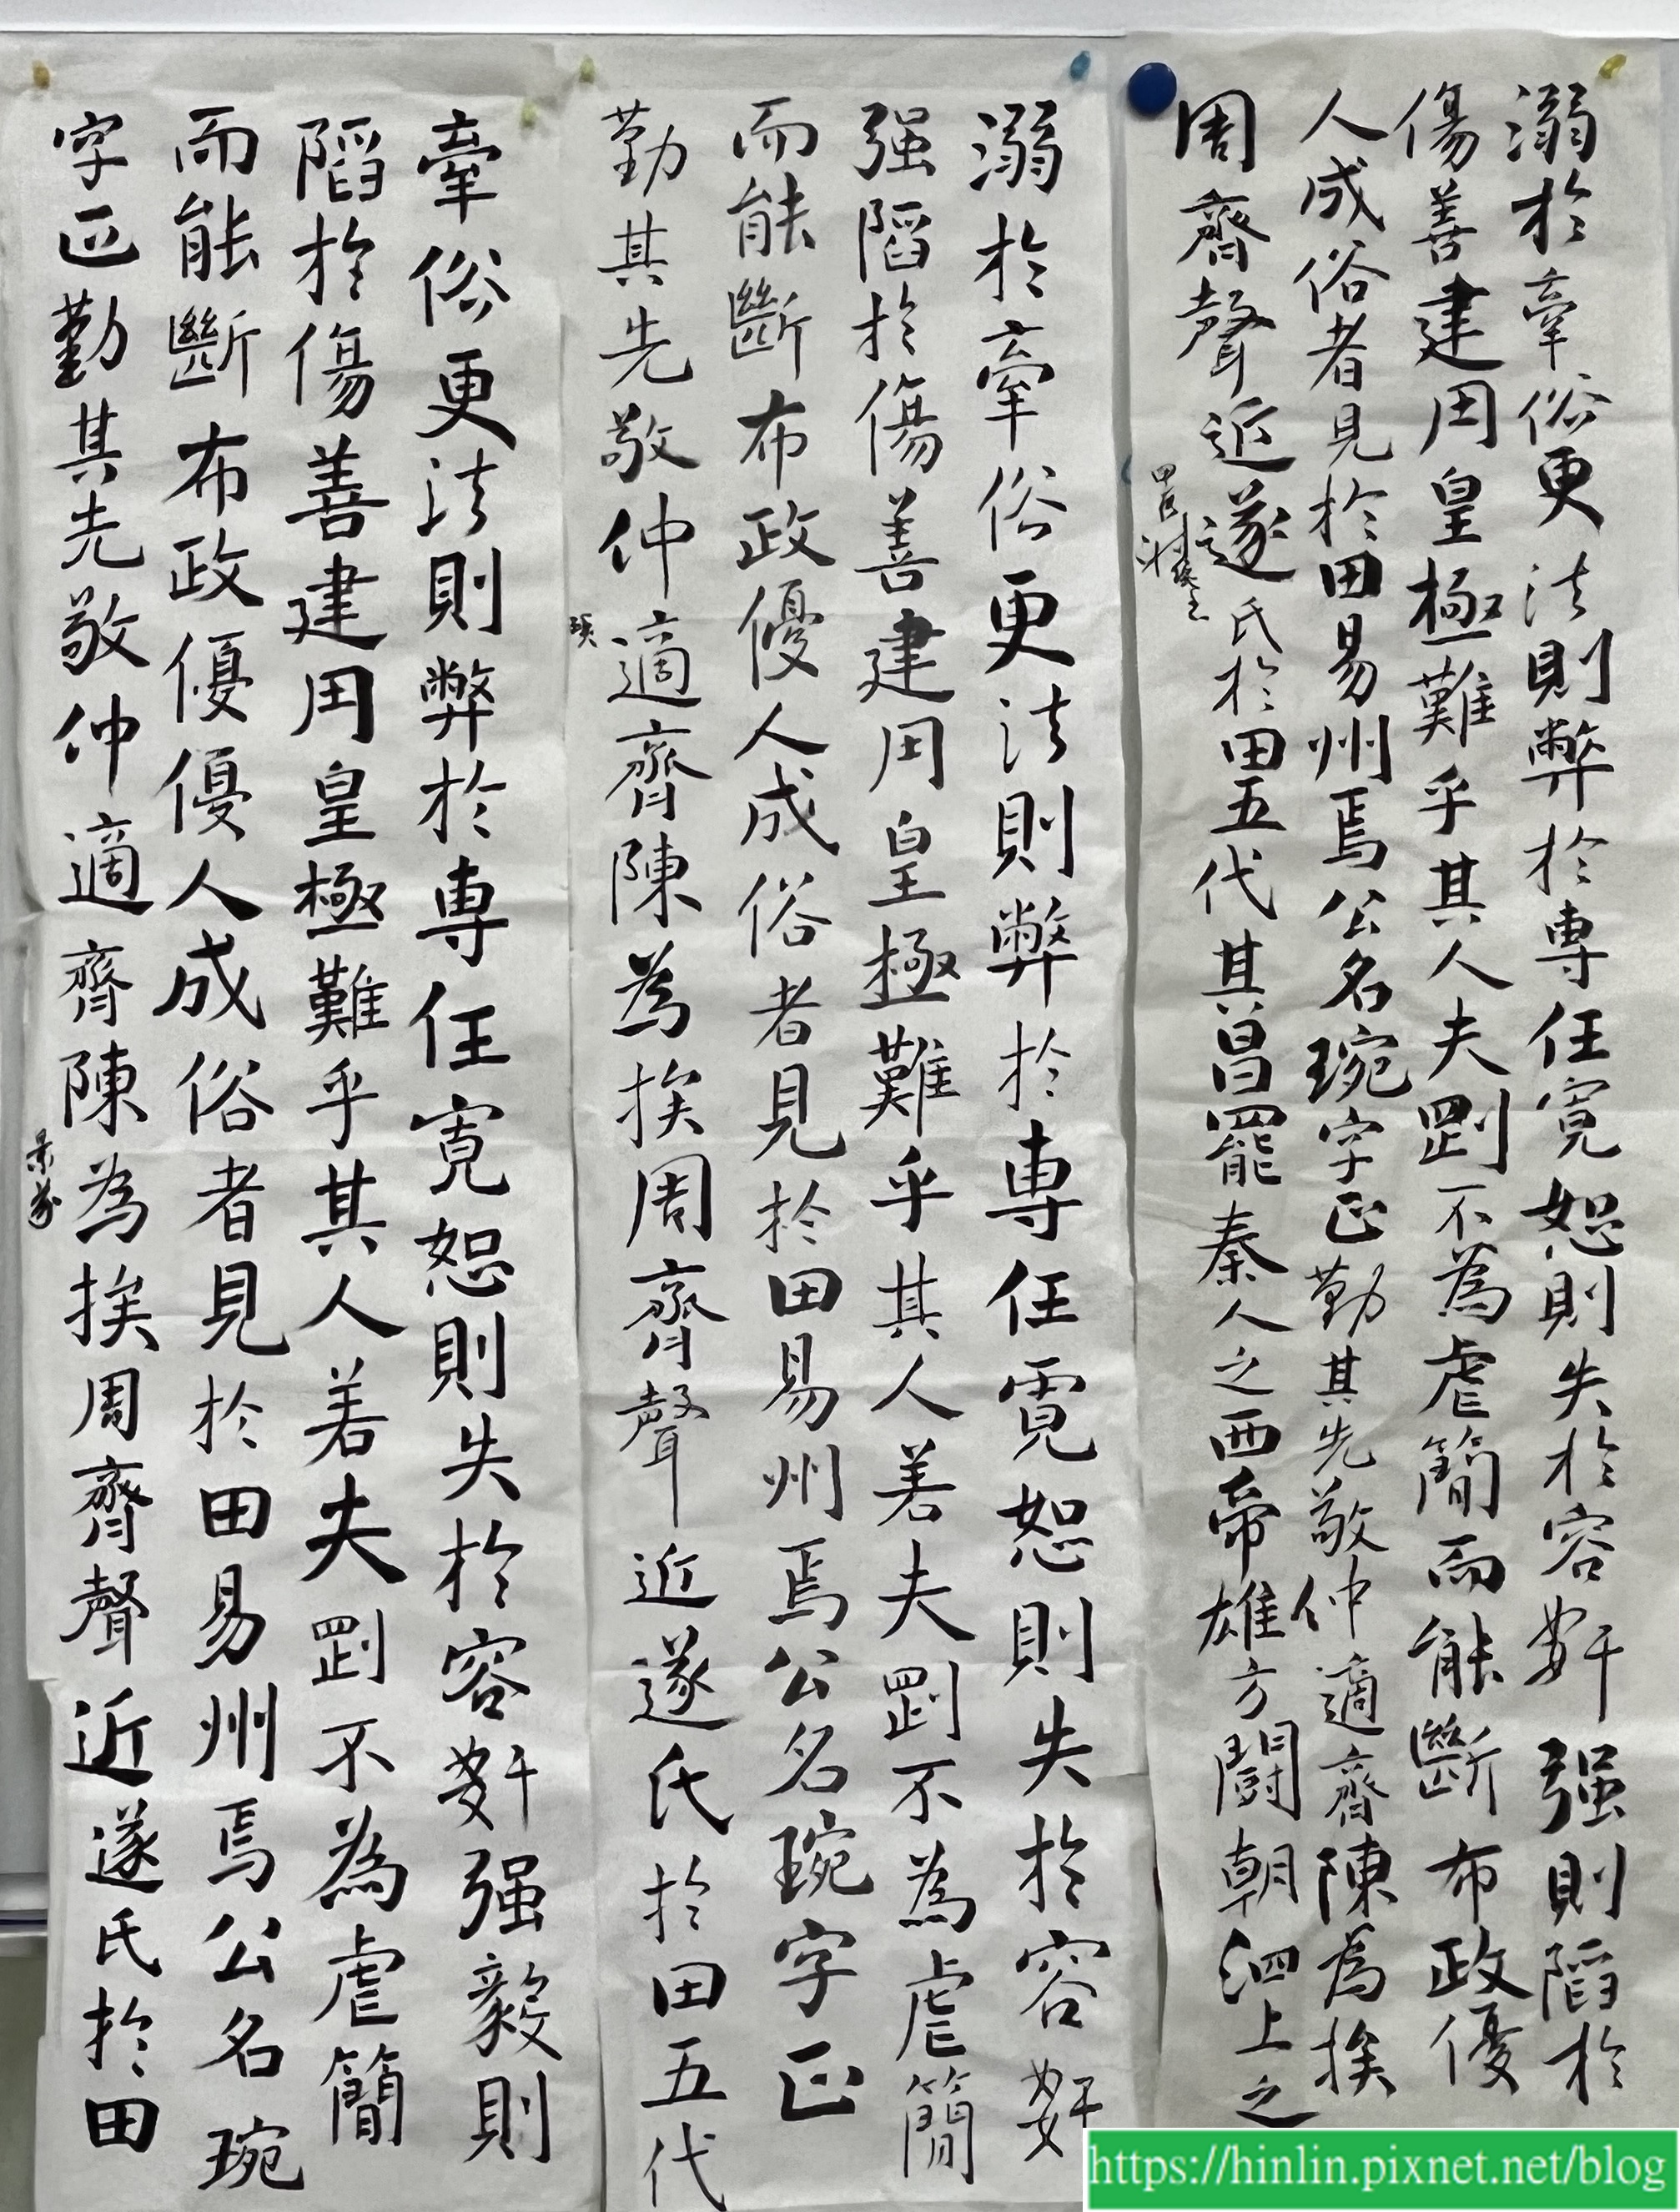 溺於牽俗更法則弊於專任寬恕則失於容姧强則陷於
傷善建用皇極難乎其人夫剛不為虐簡而能斷布政優
人成俗者見於田易州焉公名琬字正勤其先敬仲適齊陳為挨
周齊聲近遂氏於田五代其昌罷秦人之西帝雄方鬪朝泗上之
溺於牽俗更法則弊於專任寬恕則失於容姧
强陷於傷善建用皇極難乎其人若夫剛不為虐簡
而能斷布政優人成俗者見於田易州焉公名琬字正
勤其先敬仲適齊陳為挨周齊聲近遂氏於田五代
牽俗更法則弊於專任寬恕則失於容姧强毅則
陷於傷善建用皇極難乎其人若夫剛不為虐簡
而能斷布政優優人成俗者見於田易州焉公名琬
字正勤其先敬仲適齊陳為挨周齊聲近遂氏於田
https://hinlin.pixnet.net/blog